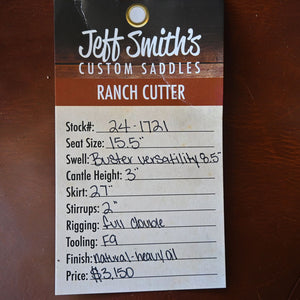 Jeff Smith's
CUSTOM SADDLES
RANCH CUTTER
Stock#: 24-1721
Seat Size: 15.5"
Swell: Buster versatility 8.5"
Cantle Height: 3"
Skirt: 27"
Stirrups: 2"
Rigging: full double
Tooling: F9
Finish: natural-heavy oil
Price: $3,150